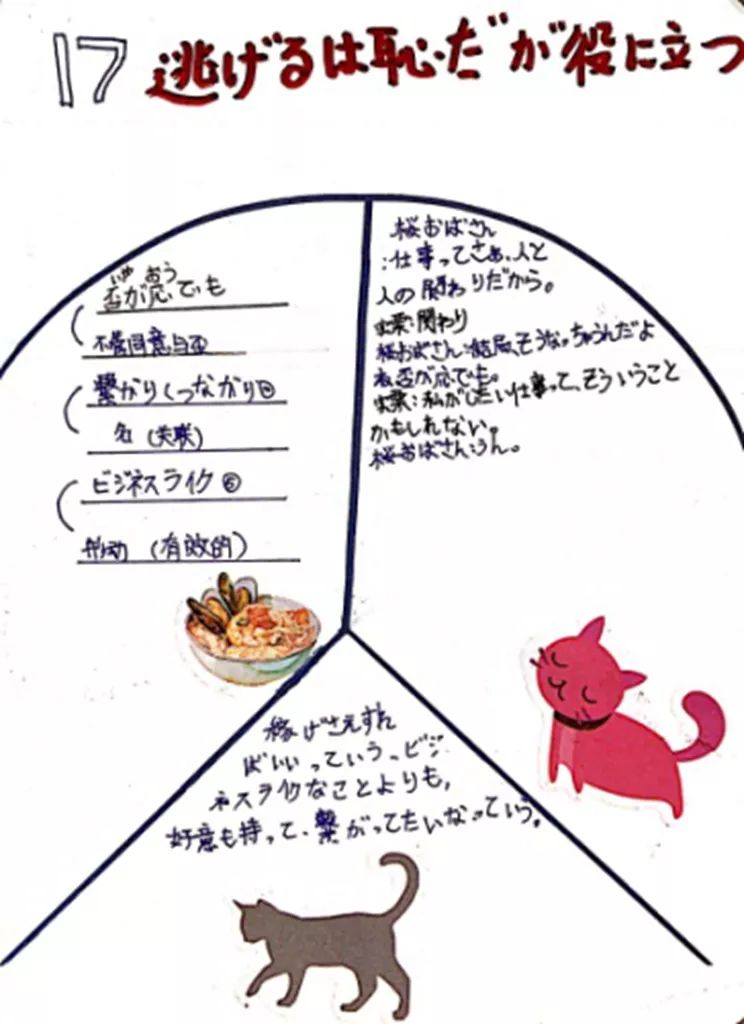 17 逃げるは恥だが役に立つ
いや おう
否が応でも
不管同意与否
繋がり(つながり⓪
名 (关联)
ビジネスライク⑤
形动 (有效的)
桜おばさん
:仕事ってさぁ、人と
人の関わりだから。
実栗:関わり
桜おばさん:結局、そうなっちゃうんだよ
ね否が応でも。
実栗:私がしたい仕事って、そういうこと
かもしれない。
桜おばさん:うん。
稼げさえすれ
ばいいっていう、ビジ
ネスライクなことよりも,
好意も持って、繋がってたいなっていう。